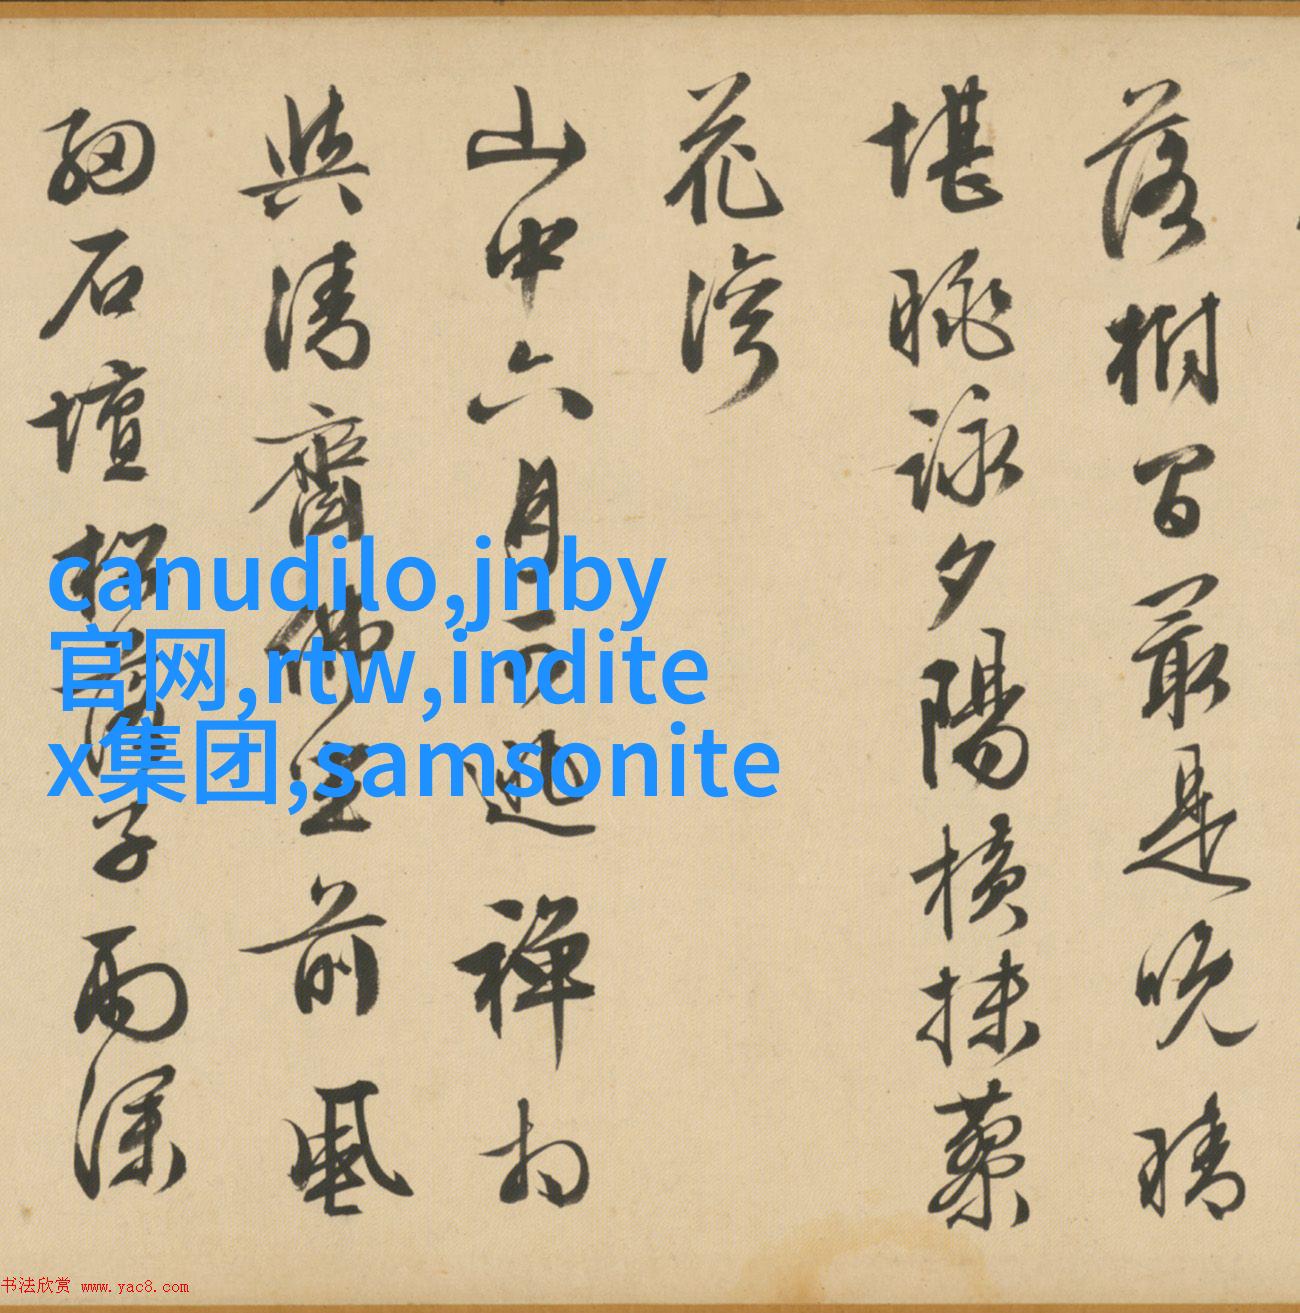 落樹百最是晚晴
堪眺詠夕陽橫抹藥
花灣
山中六月
禪
與清齋佛
前風
細石壇松
子雨深
canudilo,jnby
官网,rtw,indite
x集团,samsonite
书法欣赏 www.yac8.com